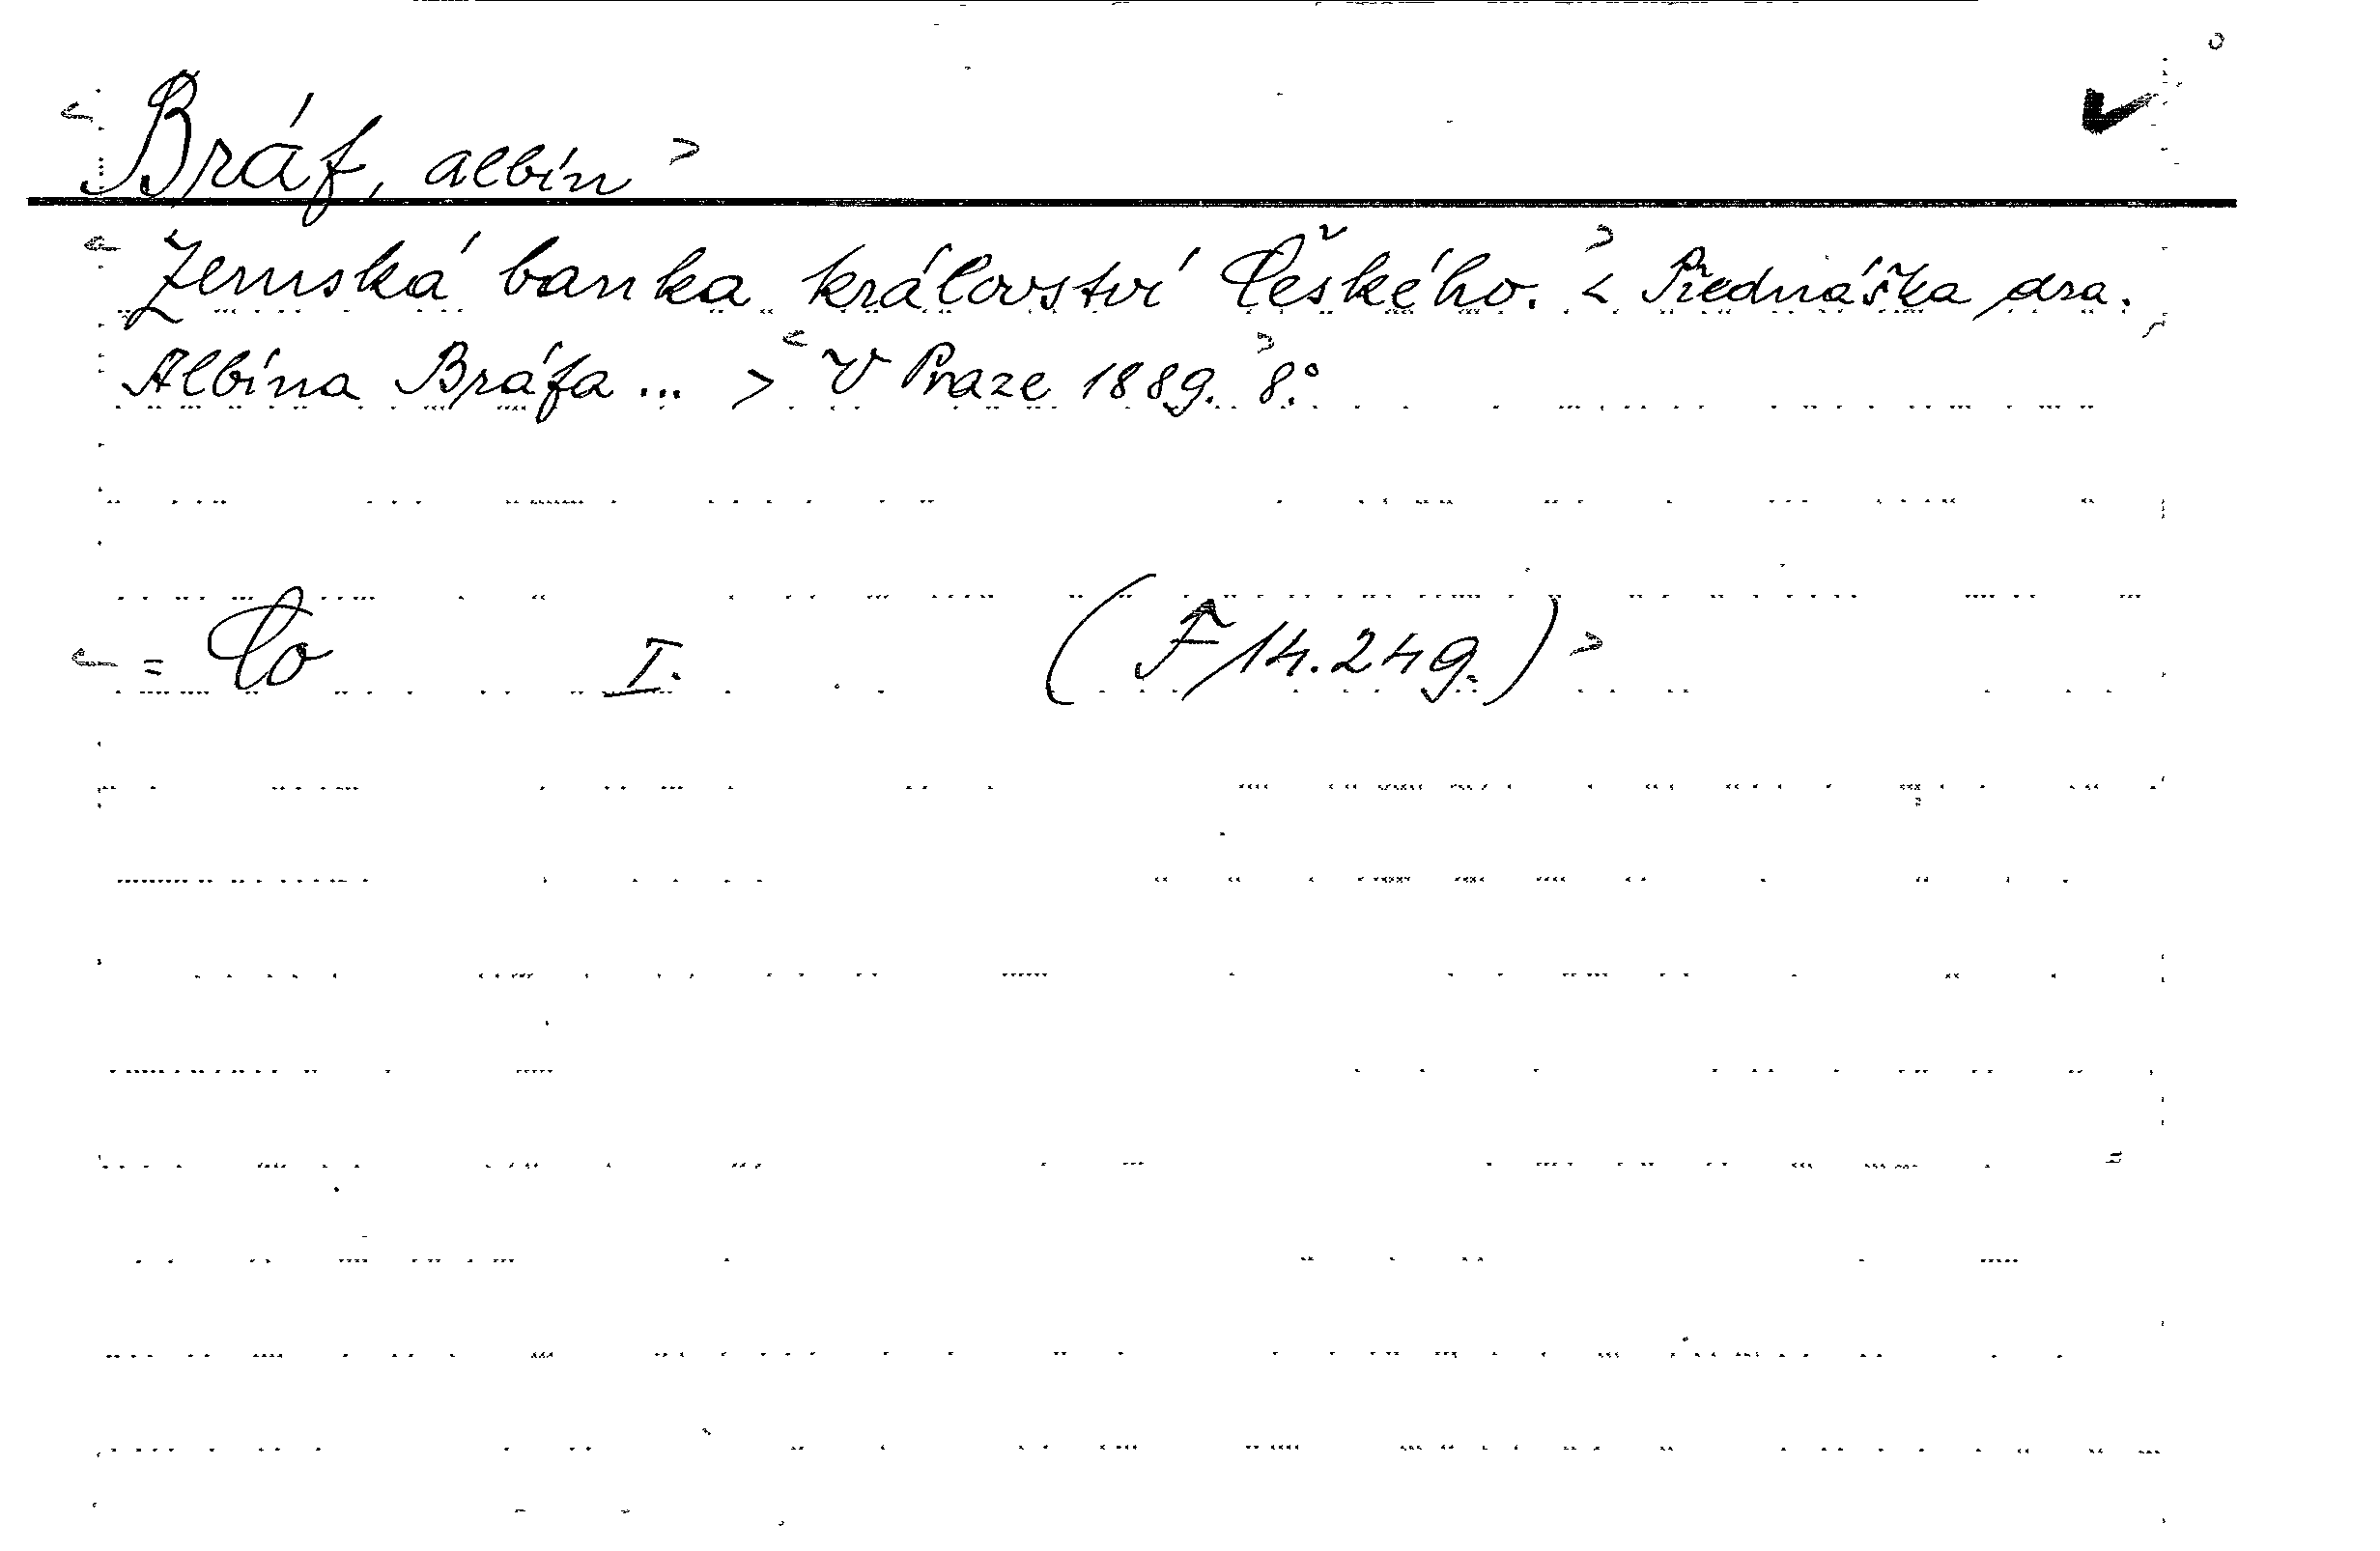 < Bráf, Albín >
< Zemská banka království Českého. > < Přednáška dra.
Albína Bráfa ... > < V Praze 1889. > 8.°
< = Co I. (F 14.249.) >